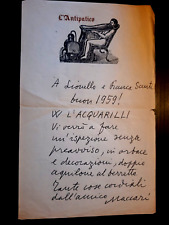 L'Antipatico
A Lionello e Franco Scinti
buon 1959!
W L'ACQUARILLI
Vi verrò a fare
un'ispezione senza
preavviso, in orba-
ce e decorazioni, doppio
aquilone al berretto
Tante cose cordiali
dall'amico Maccari